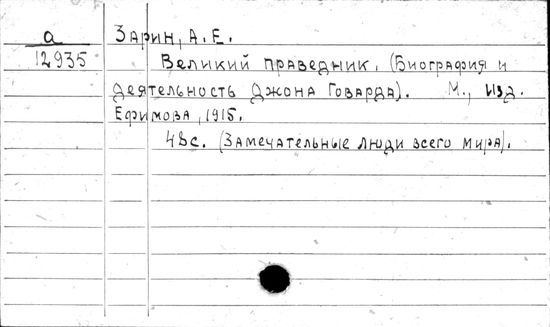 а Зарин, А.Е.
12935 Великий праведник. (Биография и
деятельность Джона Говарда). М., Изд.
Ефимова, 1915.
48с. (Замечательные люди всего мира).